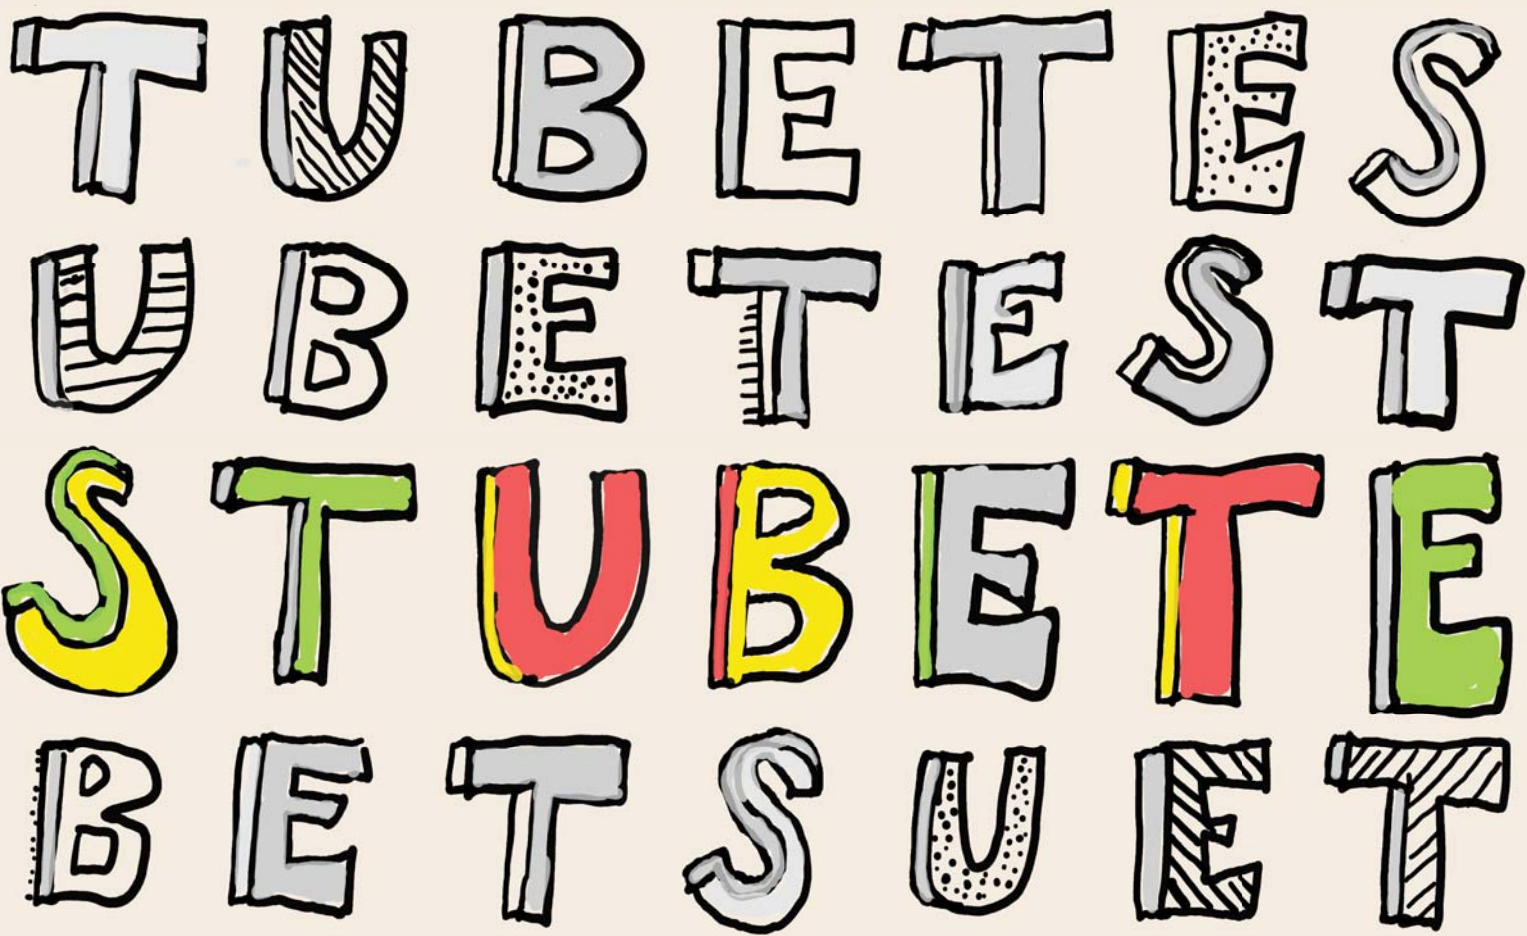 TUBETES
UBETEST
STUBETE
BETSUET